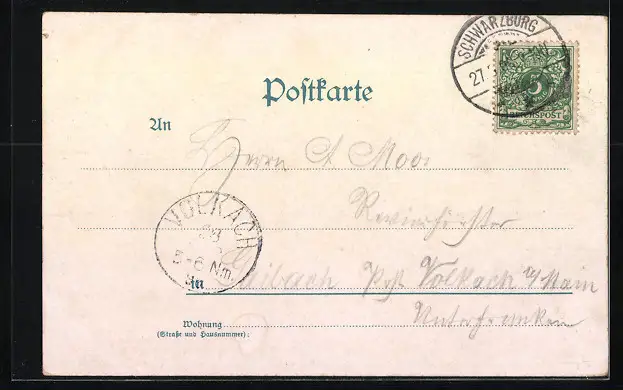 SCHWARZBURG
27.
5
REICHSPOST
Postkarte
An
Herrn A Moos
Revierförster
VOLKACH
5-6 Nm.
in Gaibach Post Volkach a/Main
Unterfranken
Wohnung
(Straße und Hausnummer):